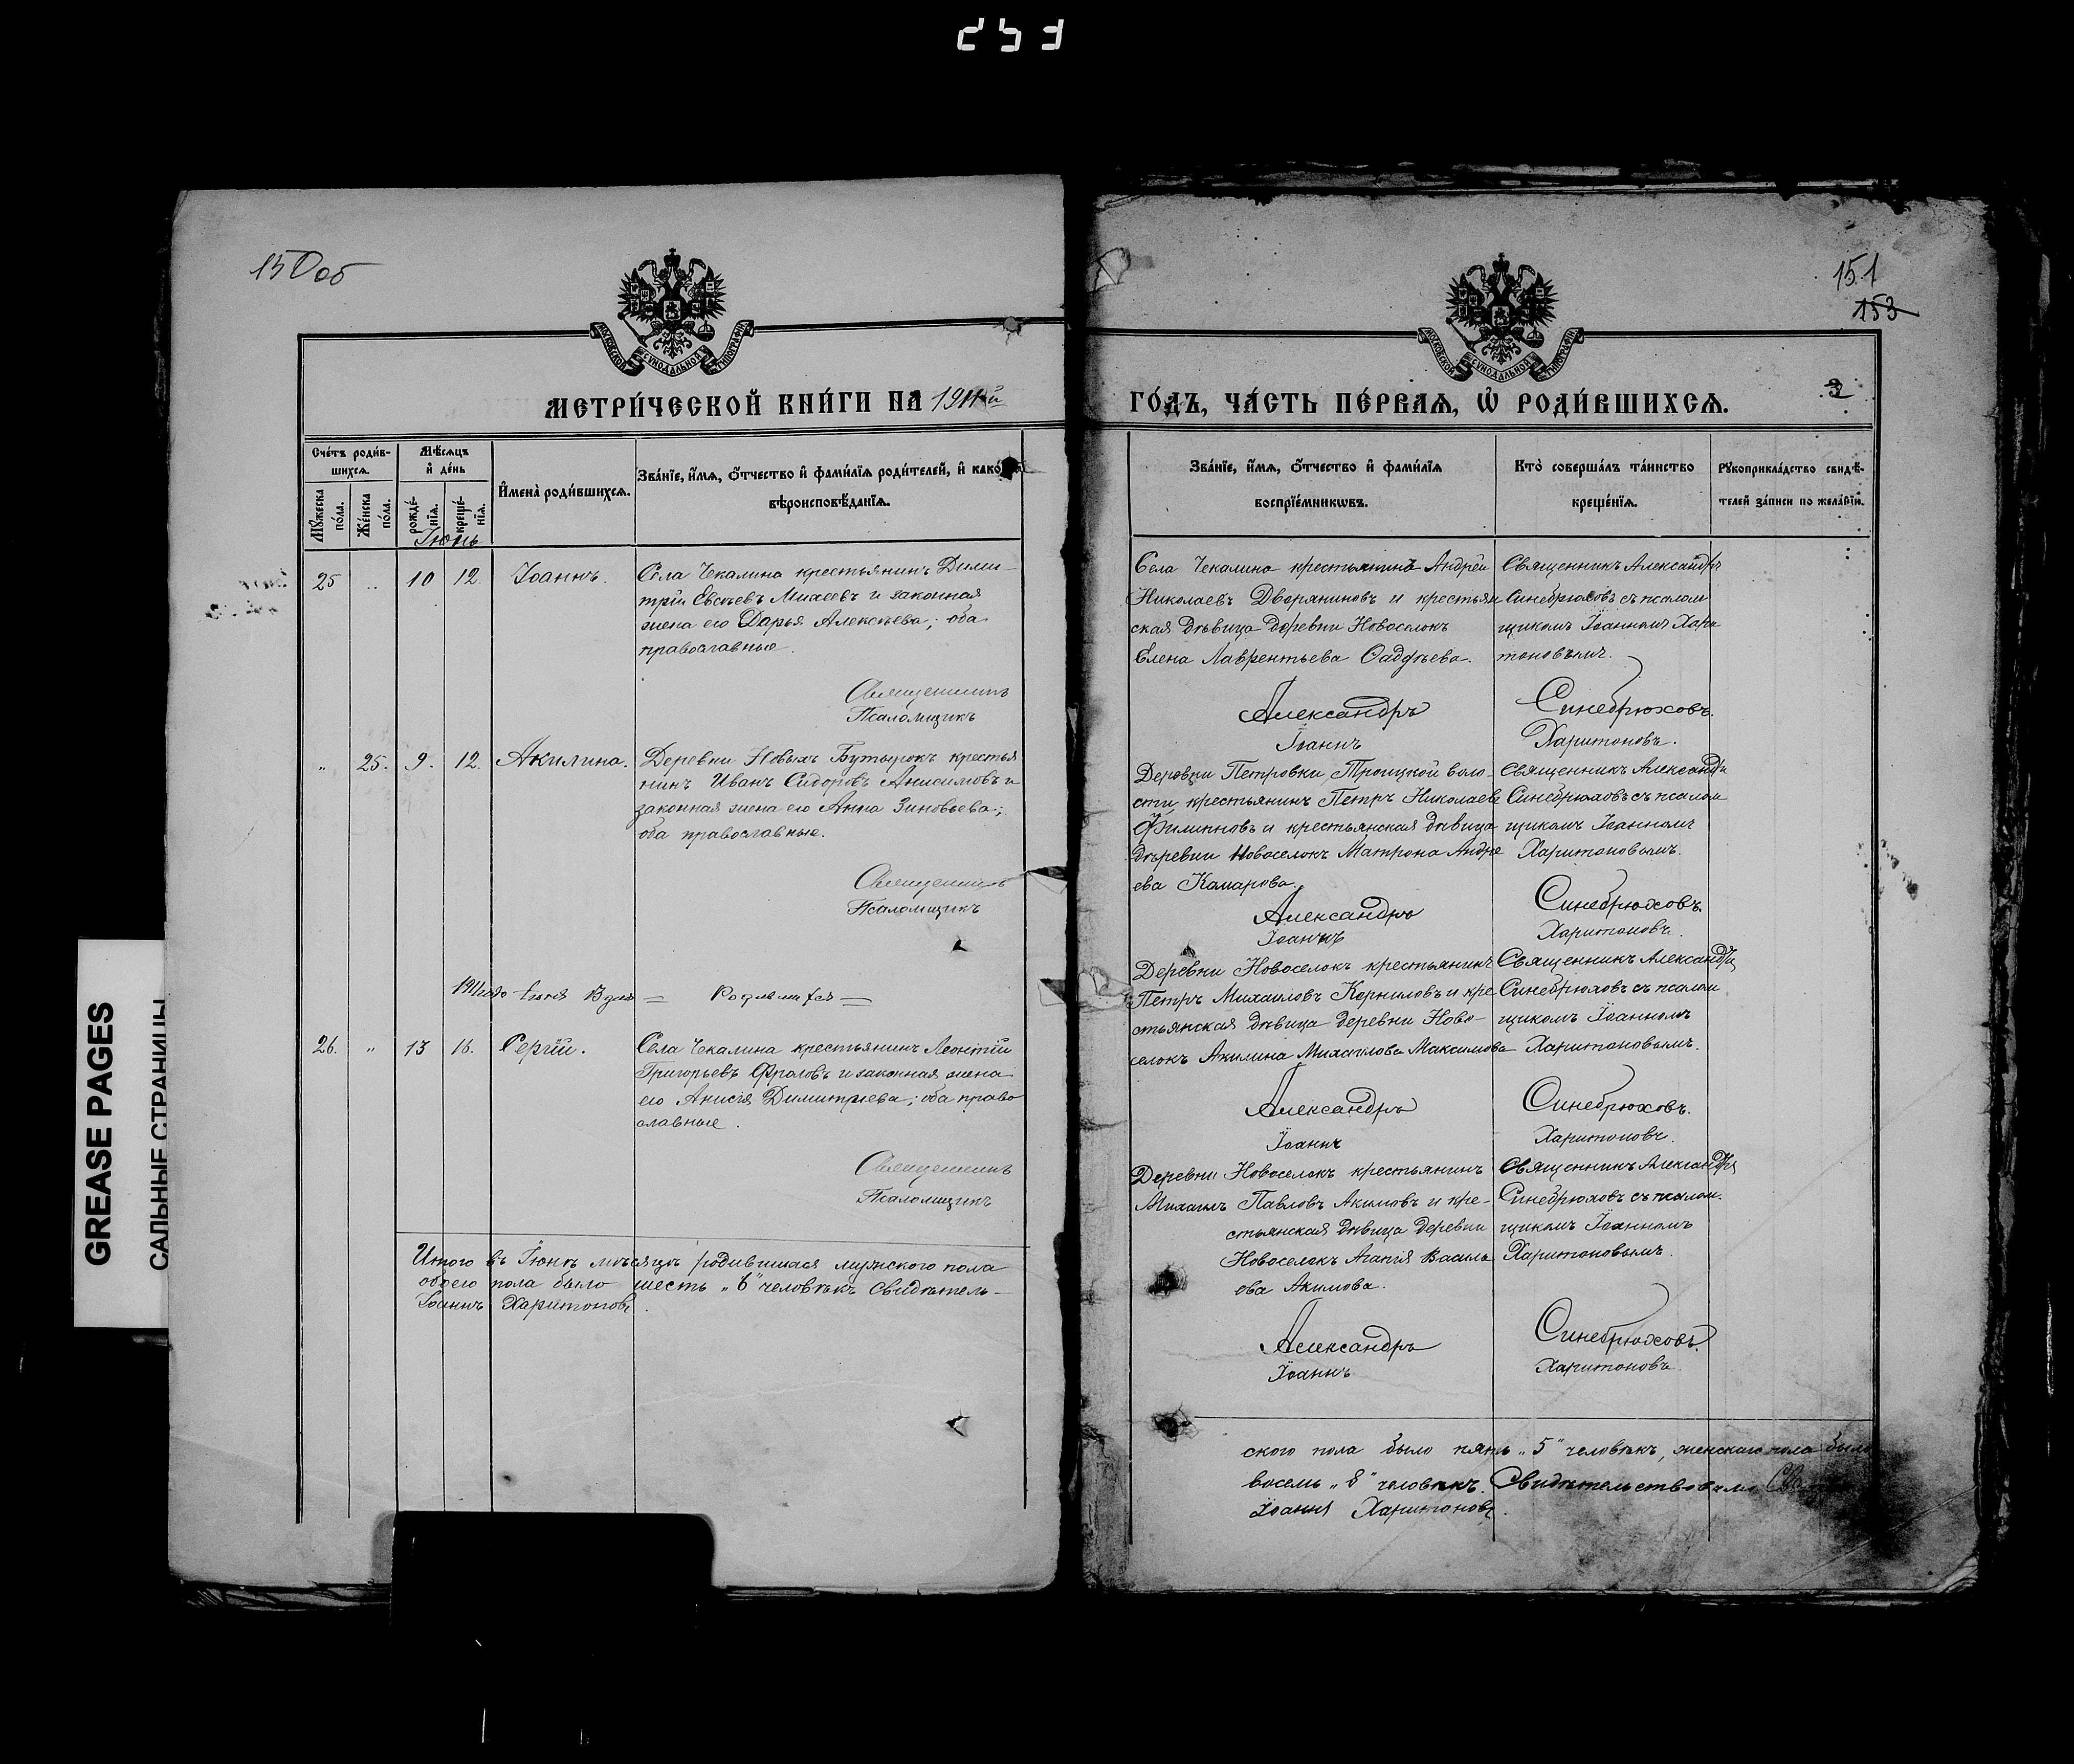 150 об
МОСКОВСКОЙ СѴНОДАЛЬНОЙ ТИПОГРАФІИ
МЕТРИ́ЧЕСКОЙ КНИ́ГИ НА 1911й
Сче́тъ роди́в-
шихся.
Мѣ́сяцъ
и҆ де́нь
Мꙋ́жеска
по́ла.
Же́нска
по́ла.
рожде́-
нїя.
креще́-
нїя.
И҆мена̀ роди́вшихся.
Зва́нїе, и҆́мя, ѻ҆́тчество и҆ фами́лїя роди́телей, и҆ како́гѡ
вѣроисповѣ́данїя.
Іюнь
25 „ 10 12. Іоаннъ. Села Чекалина крестьянинъ Дими-
трій Евсѣевъ Михеевъ и законная
жена его Дарья Алексѣева; оба
православные.
Священникъ
Псаломщикъ
„ 25. 9. 12. Акилина. Деревни Новыхъ Бутырокъ крестья
нинъ Иванъ Сидоровъ Анисимовъ и
законная жена его Анна Зиновьева;
оба православные.
Священникъ
Псаломщикъ
1911 года
26. „ 13 16. Сергій. Села Чекалина крестьянинъ Леонтій
Григорьевъ Фроловъ и законная жена
его Анисія Димитріева; оба право
славные.
Священникъ
Псаломщикъ
Итого въ Іюнѣ мѣсяцѣ родившихся мужского пола
обоего пола было шесть „6" человѣкъ Свидѣтель-
Іоаннъ Харитоновъ.
151
153
МОСКОВСКОЙ СѴНОДАЛЬНОЙ ТИПОГРАФІИ
ГО́ДЪ, ЧА́СТЬ ПЕ́РВАЯ, Ѡ҆ РОДИ́ВШИХСЯ.
Зва́нїе, и҆́мя, ѻ҆́тчество и҆ фами́лїя
воспрїе́мникѡвъ.
Кто̀ соверша́лъ та́инство
креще́нїя.
Рꙋкоприкла́дство свидѣ́-
телей за́писи по жела́нїю.
Села Чекалина крестьянинъ Андрей
Николаевъ Дворяниновъ и крестьян
ская дѣвица деревни Новоселокъ
Елена Лаврентьева Фаддѣева.
Священникъ Александръ
Синебрюховъ съ псалом
щикомъ Іоанномъ Хари
тоновымъ.
Александръ Синебрюховъ.
Іоаннъ Харитоновъ.
Деревни Петровки, Троицкой воло-
сти, крестьянинъ Петръ Николаевъ
Филипповъ и крестьянская дѣвица
деревни Новоселокъ Матрона Андре
ева Комарова.
Священникъ Александръ
Синебрюховъ съ псалом
щикомъ Іоанномъ
Харитоновымъ.
Александръ Синебрюховъ.
Іоаннъ Харитоновъ.
Деревни Новоселокъ крестьянинъ
Петръ Михаиловъ Корниловъ и кре
стьянская дѣвица деревни Ново-
селокъ Акилина Михаилова Максимова
Священникъ Александръ
Синебрюховъ съ псалом
щикомъ Іоанномъ
Харитоновымъ.
Александръ Синебрюховъ.
Іоаннъ Харитоновъ.
Деревни Новоселокъ крестьянинъ
Михаилъ Павловъ Акимовъ и кре-
стьянская дѣвица деревни
Новоселокъ Агапія Василь
ева Акимова.
Священникъ Александръ
Синебрюховъ съ псалом.
щикомъ Іоанномъ
Харитоновымъ.
Александръ Синебрюховъ.
Іоаннъ Харитоновъ.
ского пола было пять „5" человѣкъ, женскаго пола было
восемь „8" человѣкъ. Свидѣтельствовали
Іоаннъ Харитоновъ.
GREASE PAGES
САЛЬНЫЕ СТРАНИЦЫ